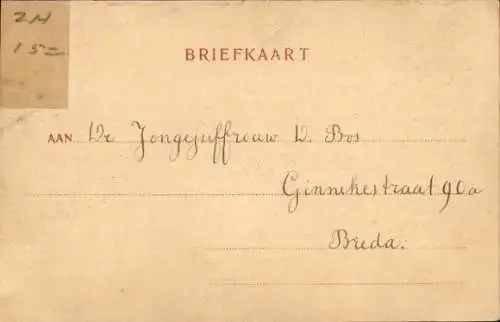 ZH
15=
BRIEFKAART
AAN De Jongejuffrouw D. Bos
Ginnekestraat 90a
Breda.